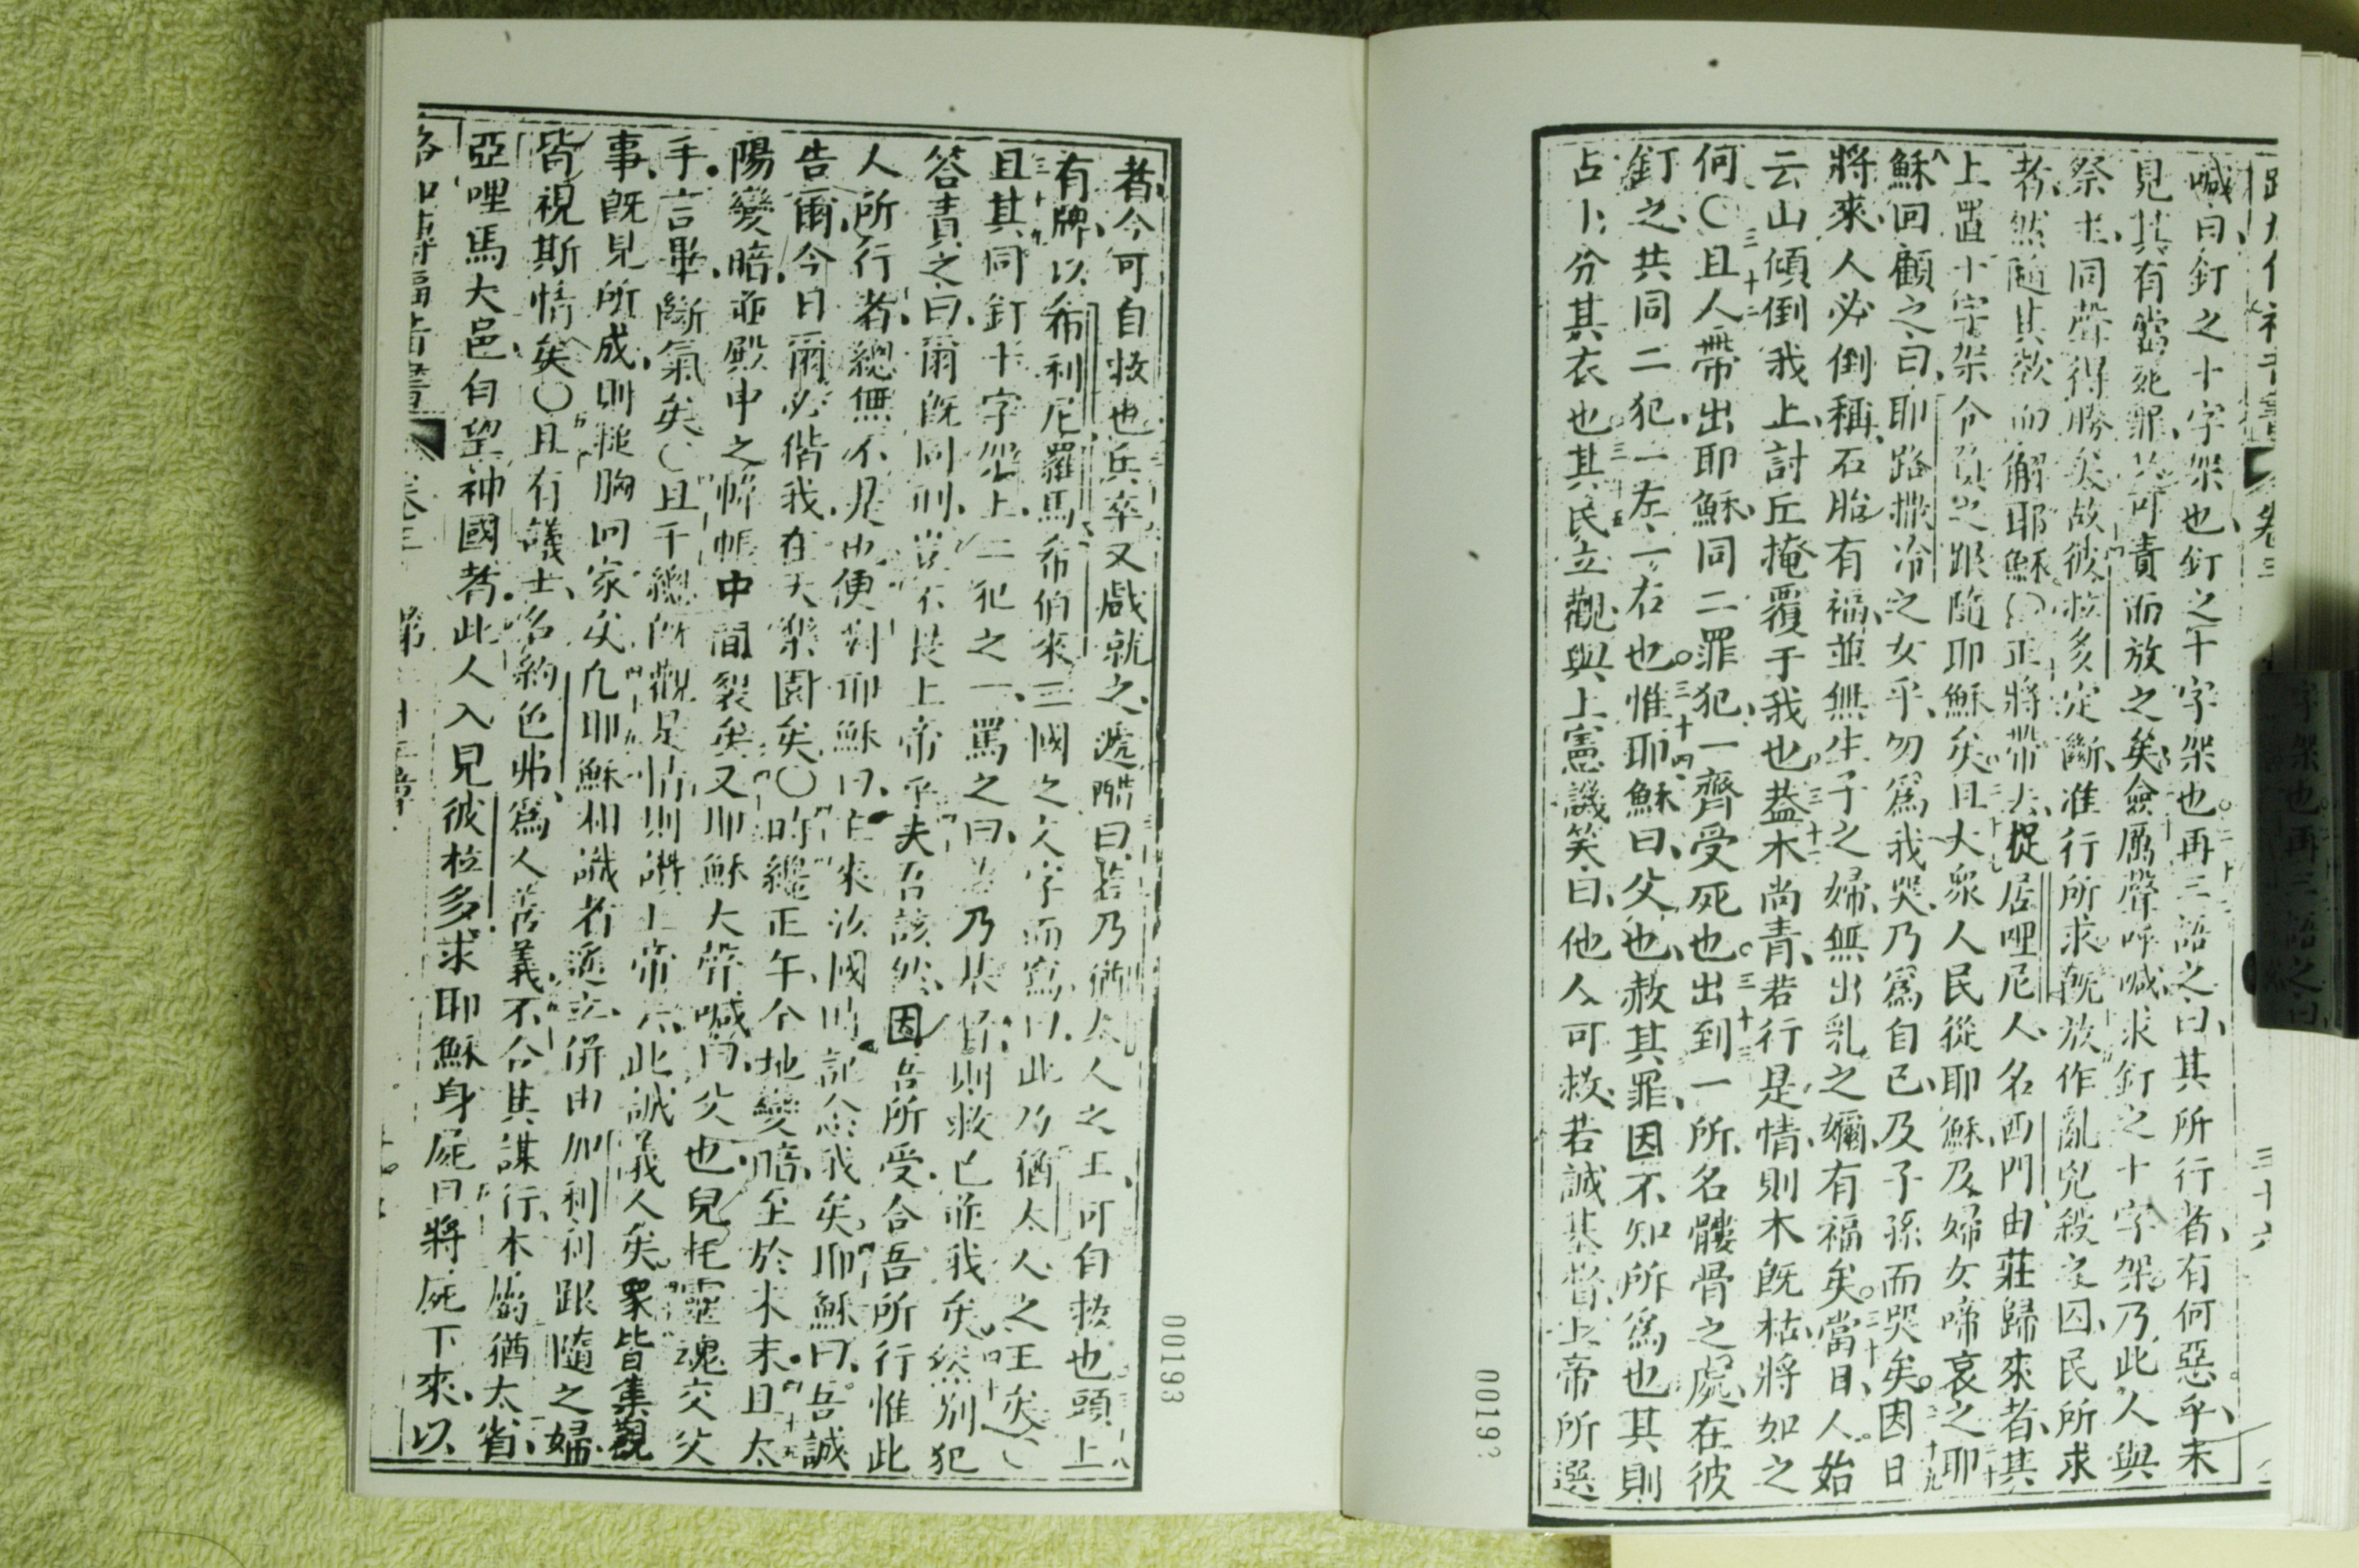 喊曰釘之十字架也釘之十字架也再三語之曰其所行者有何惡乎未
見其有當死罪可責而放之矣僉厲聲呼喊求釘之十字架乃此人與
祭主同聲得勝矣故彼拉多定斷准行所求旣放作亂兇殺之囚民所求
者然隨其欲而解耶穌〇正將帶去捉居哩尼人名西門由莊歸來者其
上置十字架令負之跟隨耶穌矣且大眾人民從耶穌及婦女啼哀之耶
穌回顧之曰耶路撒冷之女乎勿爲我哭乃爲自己及子孫而哭矣因日
將來人必倒稱石胎有福並無生子之婦無出乳之嬭有福矣當日人始
云山傾倒我上討丘掩覆于我也蓋木尚青若行是情則木旣枯將如之
何〇且人帶出耶穌同二罪犯一齊受死也出到一所名髏骨之處在彼
釘之共同二犯一左一右也惟耶穌曰父也赦其罪因不知所爲也其則
占卜分其衣也其民立觀與上憲譏笑曰他人可救若誠基督上帝所選
三十六
00193
者今可自救也兵卒又戲就之遞醋曰若乃猶太人之王可自救也頭上
有牌以希利尼羅馬希伯來三國之文字而寫曰此乃猶太人之王矣〇
且其同釘十字架上二犯之一罵之曰若乃基督則救己並我矣然別犯
答責之曰爾旣同刑豈不畏上帝乎夫吾該然因吾所受合吾所行惟此
人所行者總無不是也便對耶穌曰主來汝國時記念我矣耶穌曰吾誠
告爾今日爾必偕我在天樂園矣〇時纔正午今地變暗至於未末且太
陽變暗並殿中之帷帳中間裂矣又耶穌大聲喊曰父也兒托靈魂交父
手言畢斷氣矣〇且千總所觀是情則讚上帝云此誠義人矣眾皆集觀
事旣見所成則搥胸回家矣凡耶穌相識者遠立併由加利利跟隨之婦
皆視斯情矣〇且有議士名約色弗爲人善義不合其謀行本屬猶太省
亞哩馬大邑自望神國者此人入見彼拉多求耶穌身屍曰將屍下來以
路加傳福音書 卷三 第二十三章
00193